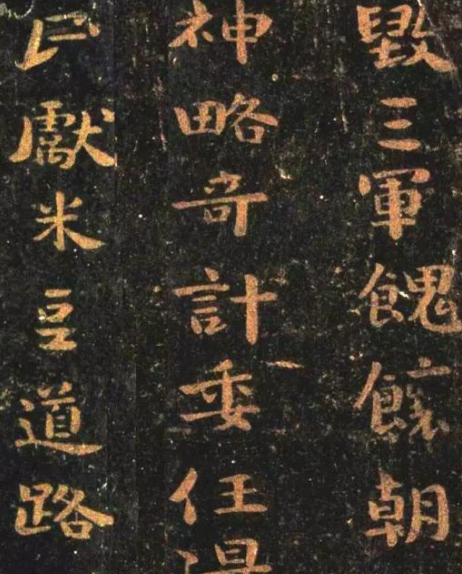 毀三軍餽饟朝
神略奇計委任得
民獻米豆道路